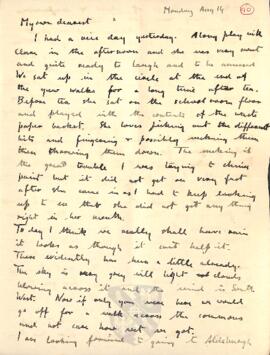 Monday Aug 14
My own dearest
I had a nice day yesterday. A long play with
Clem in the afternoon and she was very sweet
and quite ready to laugh and to be amused
We sat up in the circle at the end of
the yew walks for a long time after tea.
Before tea she sat on the school room floor
and played with the contents of the waste
paper basket. She loves picking out the different
bits and fingering & possibly sucking them
then throwing them down. The sucking is
the great trouble. I was trying to
paint but it did not get on very fast
after she came in as I had to keep looking
up to see that she did not get any thing
right in her mouth.
To day I think we really shall have rain
it looks as though it can't help it.
There evidently has been a little already.
The sky is very grey with light clouds
blowing across it and the wind is South
West. Now if only you were here we would
go off for a walk across the commons
and not care how wet we got.
I am looking forward to going to Aldeburgh